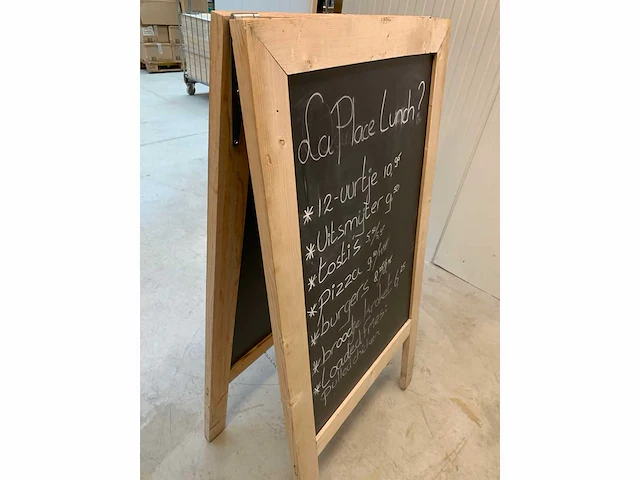 La Place Lunch?
* 12-uurtje 10,95
* Uitsmijter 9,50
* tosti's
* pizza
* burgers
* broodje kroket 6,25
* Loaded fries:
Pulled chicken